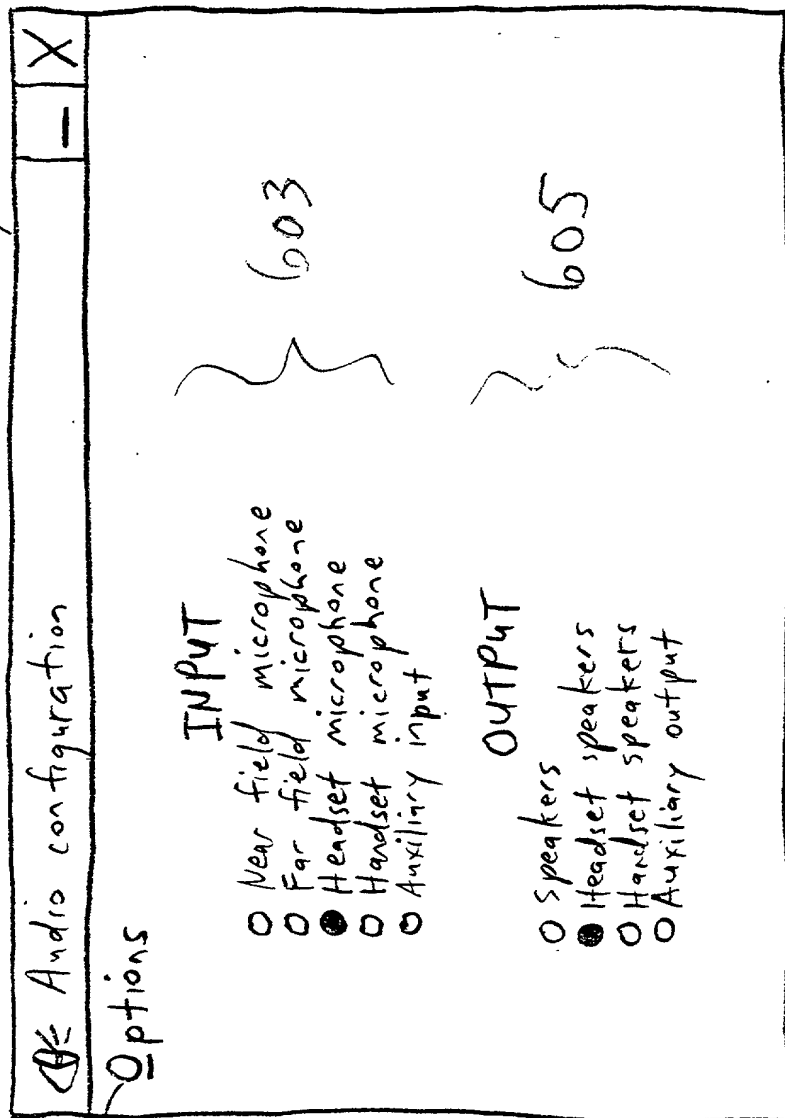 Audio configuration — X
Options
INPUT
Near field microphone
Far field microphone
Headset microphone
Handset microphone
Auxiliary input
603
OUTPUT
Speakers
Headset speakers
Handset speakers
Auxiliary output
605